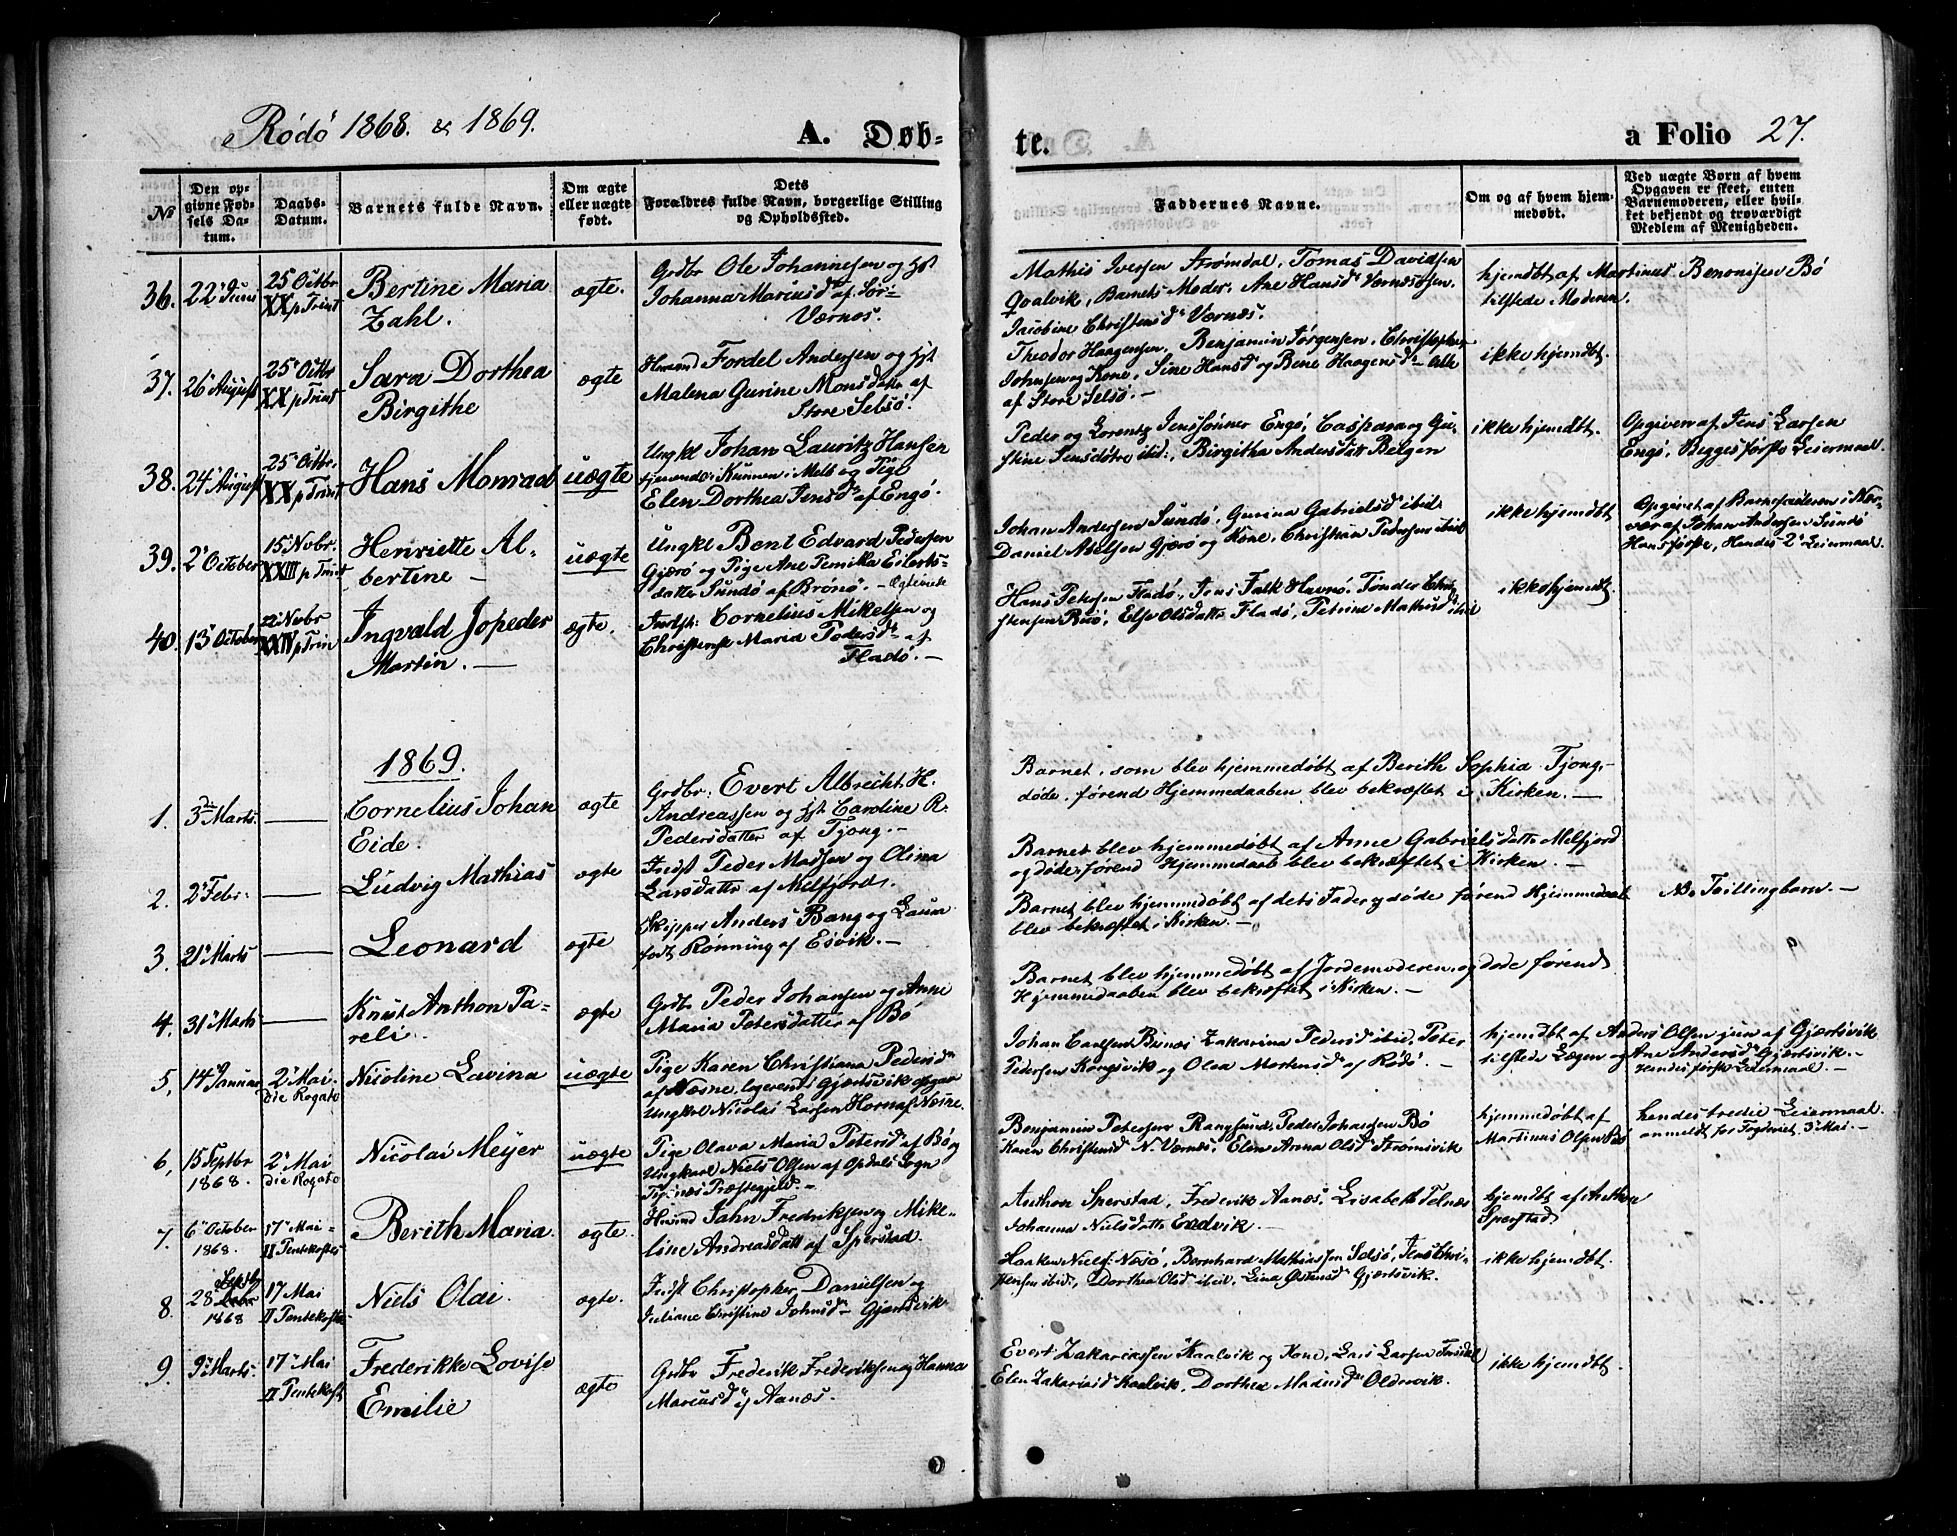 Rödö 1868. & 1869.
A. Døb-
te.
a Folio 27.
№
Den op-
givne Fød-
sels Da-
tum.
Daabs-
Datum.
Barnets fulde Navn.
Om ægte
eller uægte
født.
Dets
Forældres fulde Navn, borgerlige Stilling
og Opholdssted.
Faddernes Navne.
Om og af hvem hjem-
medøbt.
Ved uægte Børn af hvem
Opgaven er skeet, enten
Barnemoderen, eller hvil-
ket bekjendt og troværdigt
Medlem af Menigheden.
36. 22 Juni
25 Octbr
XX p Trint
Bertine Maria
Zahl.
ægte.
Grdbr Ole Johannesen og Hst
Johanna Mariusd af Sör-
Værnes.
Mathis Iversen Strömdal, Tomas Davidsen
Qvalvik, Barnets Moder, Ane Hansd Værnessosen.
Jacobine Christensd Værnes.
hjemdbt af Martinus Benonisen Bö
tilstede Moderen.
37. 26 August
25 Octbr
XX p Trint
Sara Dorthea
Birgithe
ægte
Husmd Fordel Andersen og Hst
Malena Gurine Monsdatter af
Store Selsö.
Theodor Haagensen, Benjamin Jörgensen, Christopher
Johnsen og Kone, Sine Hansd og Bene Haagensd Alle
af Store Selsö. —
ikke hjemdbt.
38. 24 August
25 Octbr.
XX p Trint
Hans Monrad
uægte
Ungkl Johan Lauritz Hansen
tjenende i Kunnen i Melö og Pige
Elen Dorthea Jensd af Engö.
Peder og Lorentz Jenssönner Engö, Caspara og Gu-
stine Jensdötre ibid:, Birgitha Andersdatt Bolgen
ikke hjemdbt.
Opgiven af Jens Larsen
Engö, Begges förste Leiermaal.
39. 2 October
15 Novbr.
XXIII p Trint
Henriette Al-
bertine —
uægte
Ungkl Bent Edvard Pedersen
Gjærö og Pige Ane Pernilla Eilerts-
datter Sundö af Brönö.
Johan Andersen Sundö, Gurina Gabrielsd ibid.
Daniel Axelsen Gjærö og Kone, Christian Pedersen ibid
ikke hjemdbt
Opgivet af Barnefaderen i Nær-
vær af Johan Andersen Sundö
Hans förste, Hendes 2 Leiermaal.
40. 13 October
22 Novbr
XXIV p Trin
Ingvald Jopeder
Martin. —
ægte.
Indst: Cornelius Mikelsen og
Christense Maria Pedersd af
Fladö. —
Hans Petersen Fladö, Jens Falk Havnö, Tönder Chri-
stensen Risö, Else Olsdatter Fladö, Petrine Mathisd ibid
ikke hjemdbt.
1869.
1. 3 Marts.
—
Cornelius Johan
Eide.
ægte
Grdbr: Evert Albrecht H.
Andreassen og Hst Caroline R.
Pedersdatter af Tjong. —
Barnet, som blev hjemmedöbt af Berith Sophia Tjong,
döde, förend Hjemmedaaben blev bekræftet i Kirken. —
2. 2 Febr.
—
Ludvig Mathias
ægte
Indst Peder Madsen og Olina
Larsdatter af Melfjord.
Barnet blev hjemmedöbt af Anne Gabrielsdatter Melfjord
og döde förend Hjemmedaab blev bekræftet i Kirken. —
3. 21 Marts
—
Leonard
ægte
Skipper Anders Bang og Laura
fodt Rönning af Esvik. —
Barnet blev hjemmedöbt af dets Fader og döde förend Hjemmedaab
blev bekræftet i Kirken. —
NB. Tvillingbarn. —
4. 31 Marts
—
Knut Anthon Pa-
reli.
ægte
Grdbr Peder Johansen og Anne
Maria Petersdatter af Bö
Barnet blev hjemmedöbt af Jordemoderen, og döde förend
Hjemmedaaben blev bekræftet i Kirken. —
5, 14 Januar
2 Mai
die Rogate
Nicoline Lavina
uægte
Pige Karen Christiana Pedersd
af Næsne, logerende Gjærtsvik opgav
Ungkarl Nicolai Larsen Horn af Næsne.
Johan Carlsen Birnæs Zakarina Pedersd ibid, Peter
Pedersen Kongsvik og Olea Mortensd af Rödö. —
hjemdbt af Anders Olsen jun af Gjærtsvik
tilstede Lægen og Ane Andersd Gjærtsvik. —
Hendes förste Leiermaal. —
6, 15 Septbr
1868.
2 Mai
die Rogate
Nicolai Meyer
uægte
Pige Olava Maria Petersd af Bö og
Ungkarl Niels Olsen af Opdals Sogn
Præstegjeld. —
Benjamin Petersen Rangsund, Peder Johansen Bö
Karen Christensd N. Værnes, Elen Anna Olsd Strömsvik
hjemmedöbt af
Martinus Olsen Bö
hendes tredie Leiermaal.
anmeldt for Fogderiet 3 Mai. —
7. 6 October
1868.
17 Mai -
II Pentekoste
Berith Maria.
ægte.
Husmd Jahn Fredriksen og Mike-
line Andreasdatt af Sperstad.
Anthon Sperstad, Frederik Aanæs, Lisabeth Telnæs
Johanna Nielsdatter Endvik. —
hjemdbt af Anthon
Sperstad
8. 28 Septbr
1868
17 Mai
II Pentekoste
Niels Olai.
ægte.
Indst Christopher Danielsen og
Juliane Christine Johnsd Gjærtsvik
Haaken Niels: Næsö, Bernhard Mathiassen Selsö, Jens Chri-
stensen ibid, Dorthea Olsd ibid, Lina Gjærtsvik.
ikke hjemdbt.
9. 9 Marts.
17 Mai
II Pentekoste
Frederikke Lovise
Emilie
ægte
Grdbr Frederik Frederiksen og Hanna
Mariusd af Aanæs.
Evert Zakariassen Kaalvik og Kone, Lars Larsen
Elen Zakariasd Kaalvik, Dorthea Mariusd Oldervik.
ikke hjemdbt.